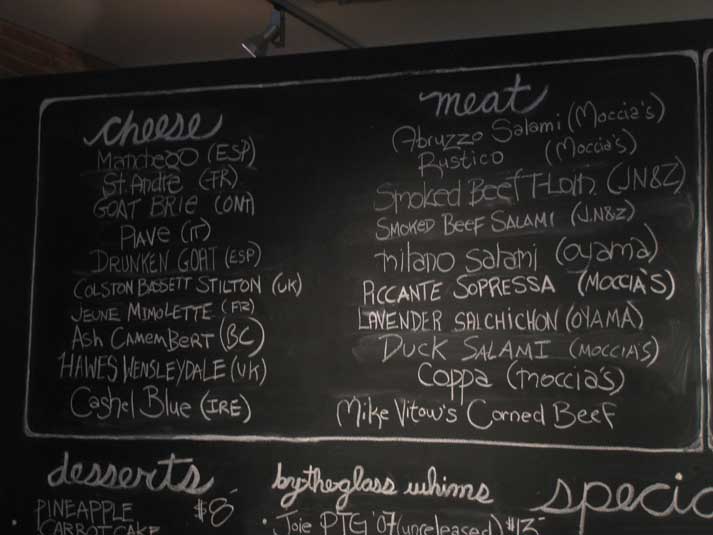 cheese
Manchego (ESP)
St. André (FR)
GOAT BRIE (ONT)
PIAVE (IT)
DRUNKEN GOAT (ESP)
COLSTON BASSETT STILTON (UK)
JEUNE MIMOLETTE (FR)
Ash CAMEMBERT (BC)
HAWES WENSLEYDALE (UK)
Cashel Blue (IRE)
meat
Abruzzo Salami (Moccia's)
Rustico (Moccia's)
Smoked Beef T-Loin (JN&Z)
SMOKED BEEF SALAMI (J.N&Z)
milano salami (oyama)
PICCANTE SOPRESSA (MOCCIA'S)
LAVENDER SALCHICHON (OYAMA)
DUCK SALAMI (MOCCIA'S)
Coppa (moccia's)
Mike Vitow's Corned Beef
desserts
PINEAPPLE
CARROT CAKE
$8
by the glass whims
• Joie PTG '07 (unreleased) $13
specia